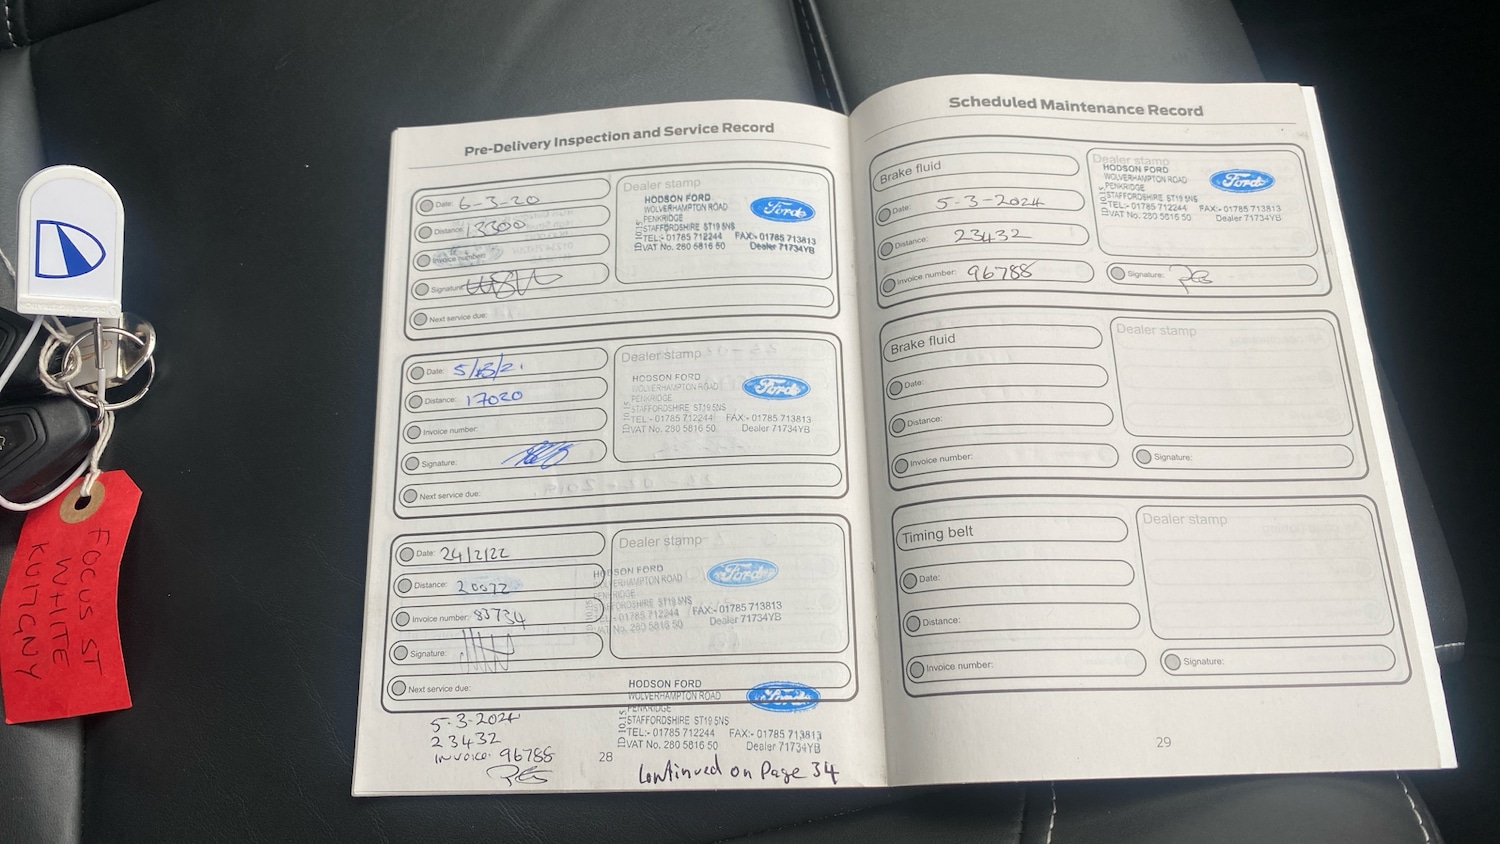 Pre-Delivery Inspection and Service Record
Date: 6-3-20
Distance: 13300
Invoice number:
Signature:
Next service due:
Dealer stamp
HODSON FORD
WOLVERHAMPTON ROAD
PENKRIDGE
STAFFORDSHIRE ST19 5NS
TEL:- 01785 712244 FAX:- 01785 713813
VAT No. 280 5816 50 Dealer 71734YB
ID.10.15.
Ford
Date: 5/03/21
Distance: 17020
Invoice number:
Signature:
Next service due:
Dealer stamp
HODSON FORD
WOLVERHAMPTON ROAD
PENKRIDGE
STAFFORDSHIRE ST19 5NS
TEL:- 01785 712244 FAX:- 01785 713813
VAT No. 280 5816 50 Dealer 71734YB
ID.10.15.
Ford
Date: 24/2/22
Distance: 20072
Invoice number: 83734
Signature:
Next service due:
Dealer stamp
HODSON FORD
WOLVERHAMPTON ROAD
PENKRIDGE
STAFFORDSHIRE ST19 5NS
TEL:- 01785 712244 FAX:- 01785 713813
VAT No. 280 5816 50 Dealer 71734YB
ID.10.15.
Ford
5-3-2024
23432
INVOICE: 96788
HODSON FORD
WOLVERHAMPTON ROAD
PENKRIDGE
STAFFORDSHIRE ST19 5NS
TEL:- 01785 712244 FAX:- 01785 713813
VAT No. 280 5816 50 Dealer 71734YB
ID.10.15.
Ford
28
Continued on Page 34
Scheduled Maintenance Record
Brake fluid
Date: 5-3-2024
Distance: 23432
Invoice number: 96788
Dealer stamp
HODSON FORD
WOLVERHAMPTON ROAD
PENKRIDGE
STAFFORDSHIRE ST19 5NS
TEL:- 01785 712244 FAX:- 01785 713813
VAT No. 280 5816 50 Dealer 71734YB
ID.10.15.
Ford
Signature:
Brake fluid
Date:
Distance:
Invoice number:
Dealer stamp
Signature:
Timing belt
Date:
Distance:
Invoice number:
Dealer stamp
Signature:
29
FOCUS ST
WHITE
KU17QNY